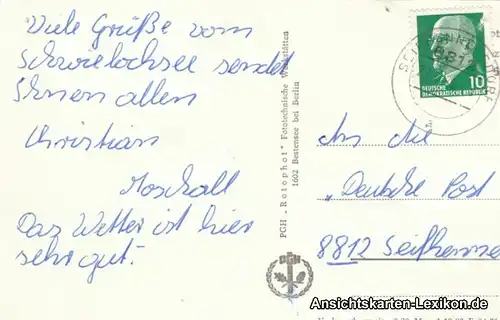 Viele Grüße vom
Schwielochsee sendet
Ihnen allen
Christian
Das Wetter ist hier
sehr gut.
PGH „Rotophot“ Fototechnische Werkstätten
1602 Bestensee bei Berlin
10
DEUTSCHE
DEMOKRATISCHE REPUBLIK
An die
"Deutsche Post
8812 Seifhenne
PGH
Ansichtskarten-Lexikon.de